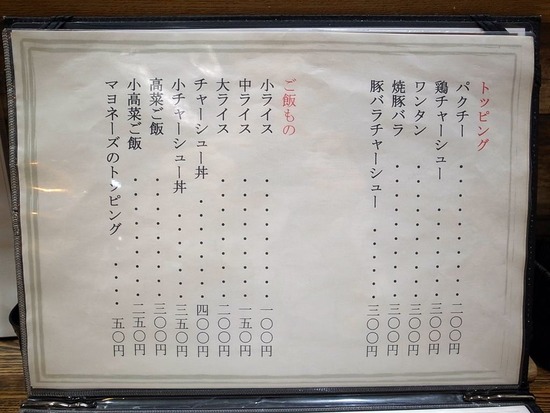 トッピング
パクチー・・・・・・・・・二〇〇円
鶏チャーシュー・・・・・・三〇〇円
ワンタン・・・・・・・・・三〇〇円
焼豚バラ・・・・・・・・・三〇〇円
豚バラチャーシュー・・・・・三〇〇円
ご飯もの
小ライス・・・・・・・・・一〇〇円
中ライス・・・・・・・・・一五〇円
大ライス・・・・・・・・・二〇〇円
チャーシュー丼・・・・・・・四〇〇円
小チャーシュー丼・・・・・・三五〇円
高菜ご飯・・・・・・・・・三〇〇円
小高菜ご飯・・・・・・・・二五〇円
マヨネーズのトッピング・・・・五〇円